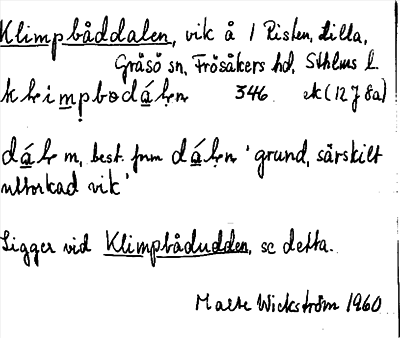 Klimpbåddalen, vik å 1 Risten, Lilla,
Gräsö sn, Frösåkers hd, Sthlms l.
346 ek (12 J 8a)
dálm, best. form dálen 'grund, särskilt
uttorkad vik'
Ligger vid Klimpbådudden, se detta.
Malte Wickström 1960